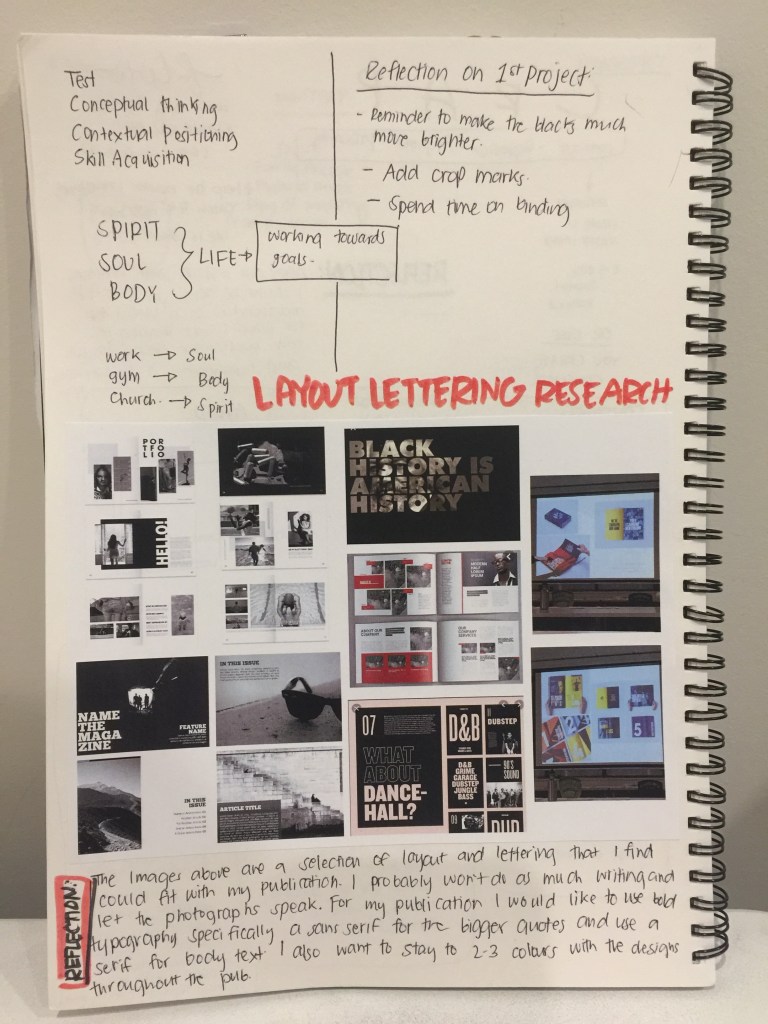 Test
Conceptual thinking
Contextual Positioning
Skill Acquisition
SPIRIT
SOUL
BODY
LIFE →
working towards
goals.
work → Soul
gym → Body
Church. → Spirit
Reflection on 1st Project:
- Reminder to make the blacks much
move brighter.
- Add crop marks.
- Spend time on binding
LAYOUT LETTERING RESEARCH
POR
TFO
LIO
HELLO!
NAME
THE
MAGA
ZINE
FEATURE
NAME
IN THIS ISSUE
IN THIS
ISSUE
ARTICLE TITLE
BLACK
HISTORY IS
AMERICAN
HISTORY
ABOUT OUR
COMPANY
OUR
COMPANY
SERVICES
07
WHAT
ABOUT
DANCE-
HALL?
D&B
DUBSTEP
D&B
GRIME
GARAGE
DUBSTEP
JUNGLE
BASS
90'S
SOUND
09
DUB
5
REFLECTION:
The Images above are a selection of layout and lettering that I find
could fit with my publication. I probably won't do as much writing and
let the photographs speak. For my publication I would like to use bold
typography specifically a sans serif for the bigger quotes and use a
serif for body text. I also want to stay to 2-3 colours with the designs
throughout the pub.